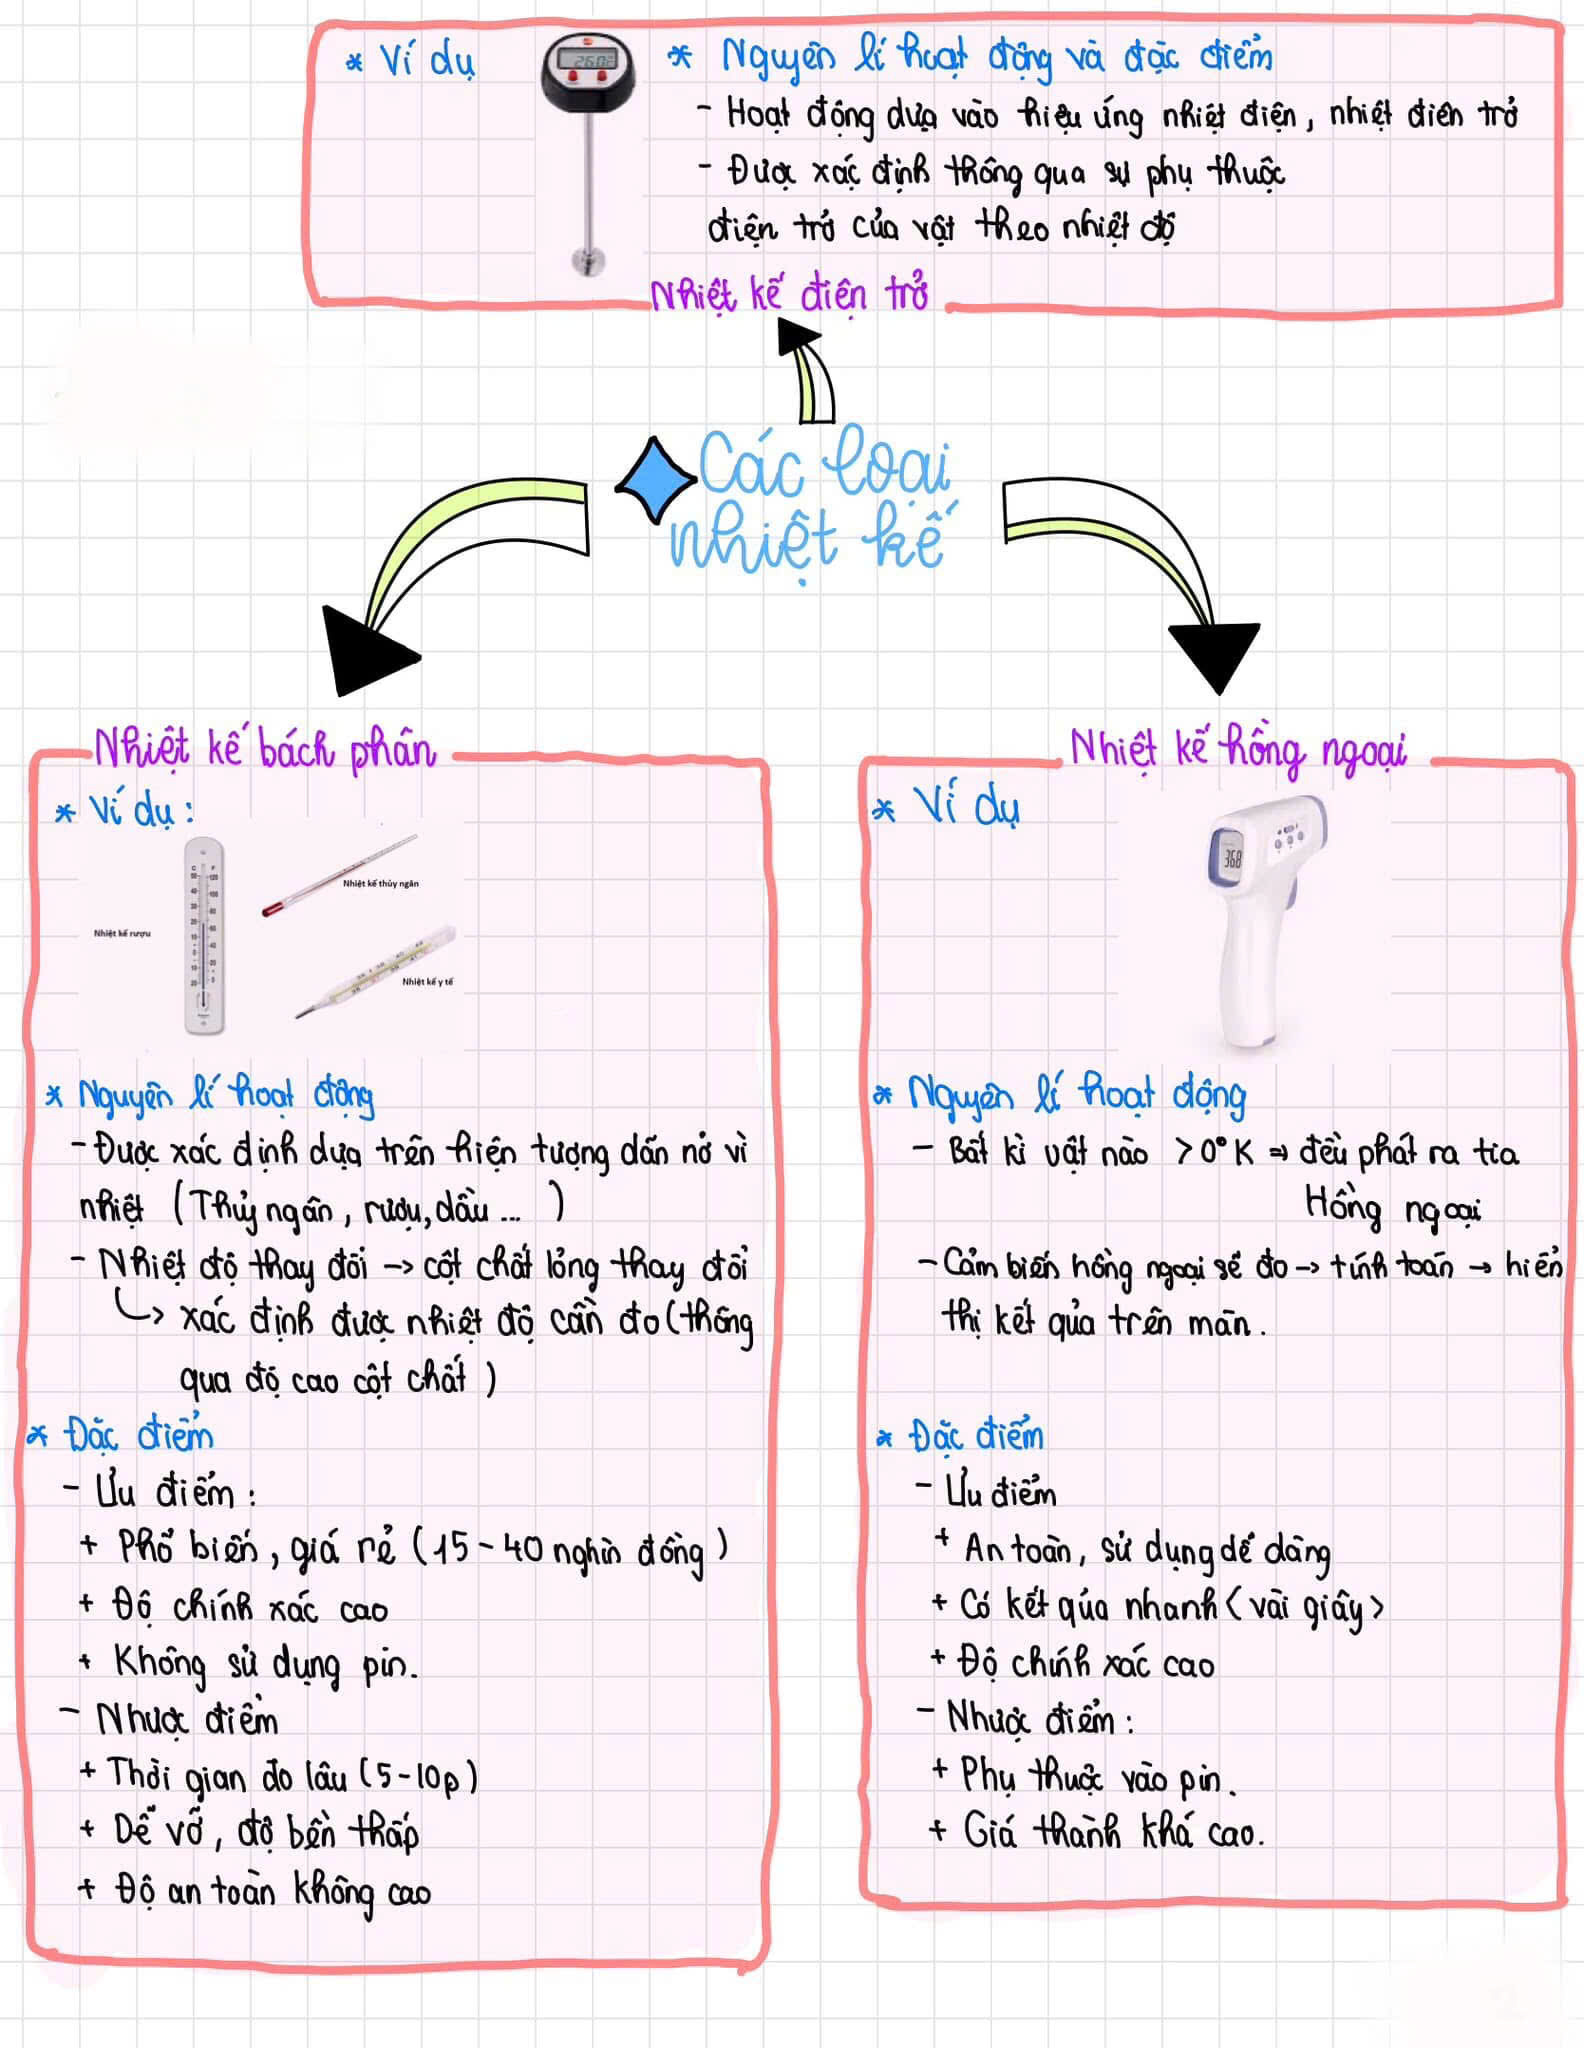 * Ví dụ
26.02
* Nguyên lí hoạt động và đặc điểm
- Hoạt động dựa vào hiệu ứng nhiệt điện, nhiệt điện trở
- Được xác định thông qua sự phụ thuộc
điện trở của vật theo nhiệt độ
Nhiệt kế điện trở
Các loại
nhiệt kế
Nhiệt kế bách phân
* Ví dụ:
Nhiệt kế thủy ngân
Nhiệt kế rượu
Nhiệt kế y tế
* Nguyên lí hoạt động
- Được xác định dựa trên hiện tượng dãn nở vì
nhiệt (Thủy ngân, rượu, dầu... )
- Nhiệt độ thay đổi → cột chất lỏng thay đổi
↳ xác định được nhiệt độ cần đo (thông
qua độ cao cột chất)
* Đặc điểm
- Ưu điểm:
+ Phổ biến, giá rẻ (15-40 nghìn đồng)
+ Độ chính xác cao
+ Không sử dụng pin.
- Nhược điểm
+ Thời gian đo lâu (5-10p)
+ Dễ vỡ, độ bền thấp
+ Độ an toàn không cao
Nhiệt kế hồng ngoại
* Ví dụ
36.8
* Nguyên lí hoạt động
- Bất kì vật nào > 0°K ⇒ đều phát ra tia
Hồng ngoại
- Cảm biến hồng ngoại sẽ đo → tính toán → hiển
thị kết quả trên màn.
* Đặc điểm
- Ưu điểm
+ An toàn, sử dụng dễ dàng
+ Có kết qủa nhanh <vài giây>
+ Độ chính xác cao
- Nhược điểm:
+ Phụ thuộc vào pin.
+ Giá thành khá cao.